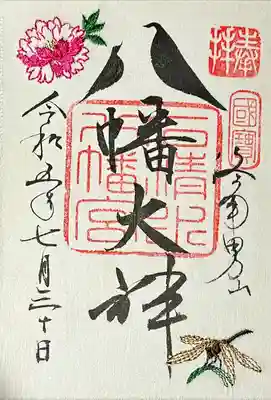 奉拝
國寶
男山
八幡大神
石清水八幡宮
令和五年七月三十日